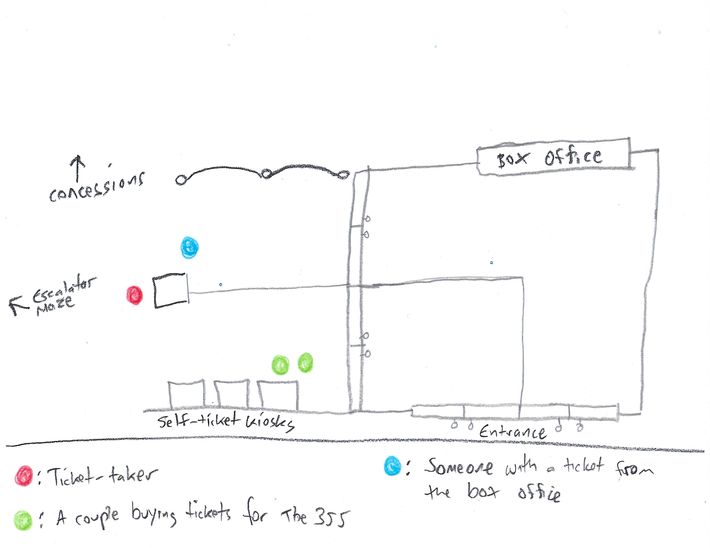 BOX OFFICE
CONCESSIONS
Escalator
Maze
Self-ticket kiosks
Entrance
: Ticket-taker
: Someone with a ticket from
the box office
: A couple buying tickets for The 355